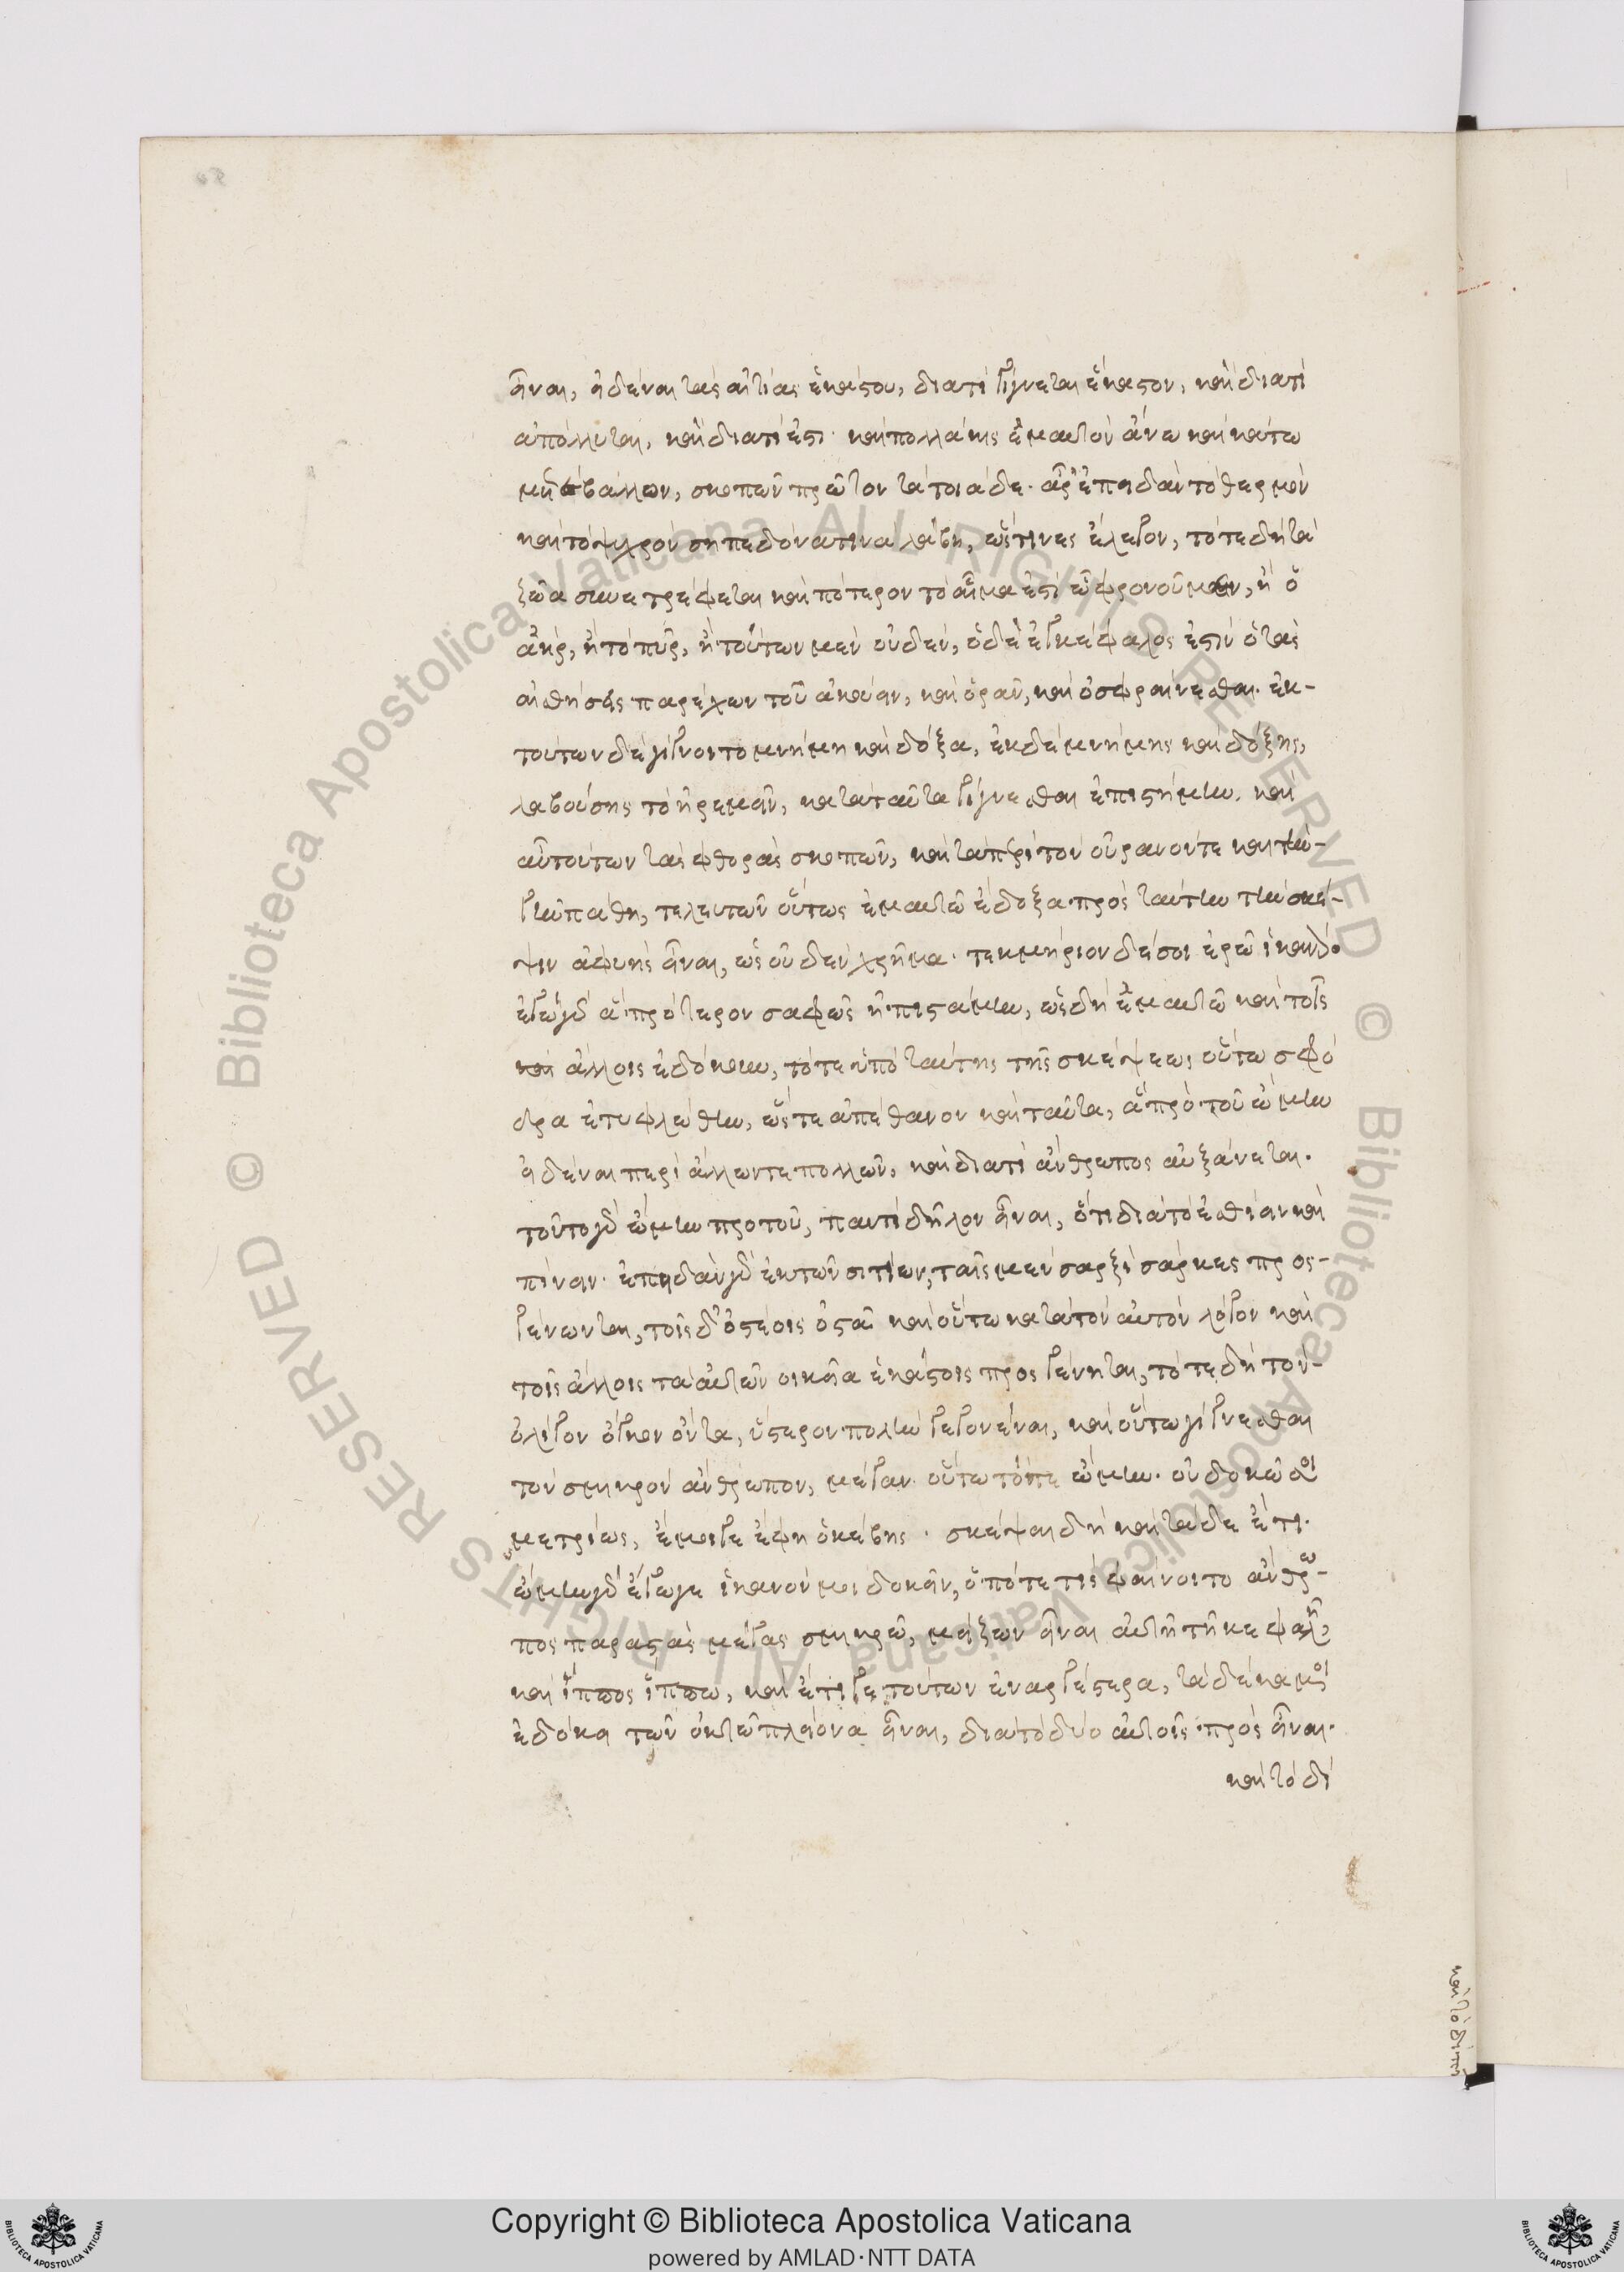 εἶναι, εἰδέναι τὰς αἰτίας ἑκάστου, διατί γίγνεται ἕκαστον, καὶ διατί
ἀπόλλυται, καὶ διατί ἐστι· καὶ πολλάκις ἐμαυτὸν ἄνω καὶ κάτω
μετέβαλλον, σκοπῶν πρῶτον τὰ τοιάδε. ἆρ' ἐπειδὰν τὸ θερμὸν
καὶ τὸ ψυχρὸν σηπεδόνα τινὰ λάβῃ, ὥς τινες ἔλεγον, τότε δὴ τὰ
ζῶα συνετρέφεται καὶ πότερον τὸ αἷμα ἐστὶ ᾧ φρονοῦμεν, ἢ ὁ
ἀὴρ, ἢ τὸ πῦρ, ἢ τούτων μὲν οὐδὲν, ὁ δὲ ἐγκέφαλος ἐστὶν ὁ τὰς
αἰσθήσεις παρέχων τοῦ ἀκούειν, καὶ ὁρᾶν, καὶ ὀσφραίνεσθαι. ἐκ-
τούτων δὲ γίγνοιτο μνήμη καὶ δόξα, ἐκ δὲ μνήμης καὶ δόξης,
λαβούσης τὸ ἠρεμεῖν, κατὰ ταῦτα γίγνεσθαι ἐπιστήμην. καὶ
αὖ τούτων τὰς φθορὰς σκοπῶν, καὶ τὰ περὶ τὸν οὐρανόν τε καὶ τὴν-
γῆν πάθη, τελευτῶν οὕτως ἐμαυτῷ ἔδοξα πρὸς ταύτην τὴν σκέ-
ψιν ἀφυὴς εἶναι, ὡς οὐδὲν χρῆμα· τεκμήριον δέ σοι ἐρῶ ἱκανόν·
ἐγὼ γὰρ ἃ πρότερον σαφῶς ἠπιστάμην, ὡς δὴ ἐμαυτῷ καὶ τοῖς
καὶ ἄλλοις ἐδόκουν, τότε ὑπὸ ταύτης τῆς σκέψεως οὕτω σφό
δρα ἐτυφλώθην, ὥστε ἀπέθανον καὶ ταῦτα, ἃ πρὸ τοῦ ᾤμην
εἰδέναι περὶ ἄλλων τε πολλῶν, καὶ διατί ἄνθρωπος αὐξάνεται.
τοῦτο γὰρ ᾤμην προτοῦ, παντὶ δῆλον εἶναι, ὅτι διὰ τὸ ἐσθίειν καὶ
πίνειν· ἐπειδὰν γὰρ ἐκ τῶν σιτίων, ταῖς μὲν σαρξὶ σάρκες προσ-
γένωνται, τοῖς δ' ὀστέοις ὀστᾶ καὶ οὕτω κατὰ τὸν αὐτὸν λόγον καὶ
τοῖς ἄλλοις τὰ αὐτῶν οἰκεῖα ἑκάστοις προσγένηται, τότε δὴ τὸν-
ὀλίγον ὄγκον ὄντα, ὕστερον πολὺν γεγονέναι, καὶ οὕτω γίγνεσθαι
τὸν σμικρὸν ἄνθρωπον, μέγαν· οὕτω τότε ᾤμην. οὐ δοκῶ σοὶ
μετρίως, ἔμοιγε ἔφη ὁ κέβης. σκέψαι δὴ καὶ τάδε ἔτι.
ᾤμην γὰρ ἔγωγε ἱκανόν μοι δοκεῖν, ὁπότε τις φαίνοιτο ἄνθρω-
πος παραστὰς μέγας σμικρῷ, μείζων εἶναι αὐτῇ τῇ κεφαλῇ,
καὶ ἵππος ἵππω, καὶ ἔτι γε τούτων ἐναργέστερα, τὰ δέκα μοὶ
ἐδόκει τῶν ὀκτὼ πλείονα εἶναι, διὰ τὸ δύο αὐτοῖς πρὸς εἶναι.
καὶ τὸ δί
Copyright © Biblioteca Apostolica Vaticana
powered by AMLAD·NTT DATA
© Biblioteca Apostolica Vaticana ALL RIGHTS RESERVED
© Biblioteca Apostolica Vaticana ALL RIGHTS RESERVED
BIBLIOTECA APOSTOLICA VATICANA
BIBLIOTECA APOSTOLICA VATICANA